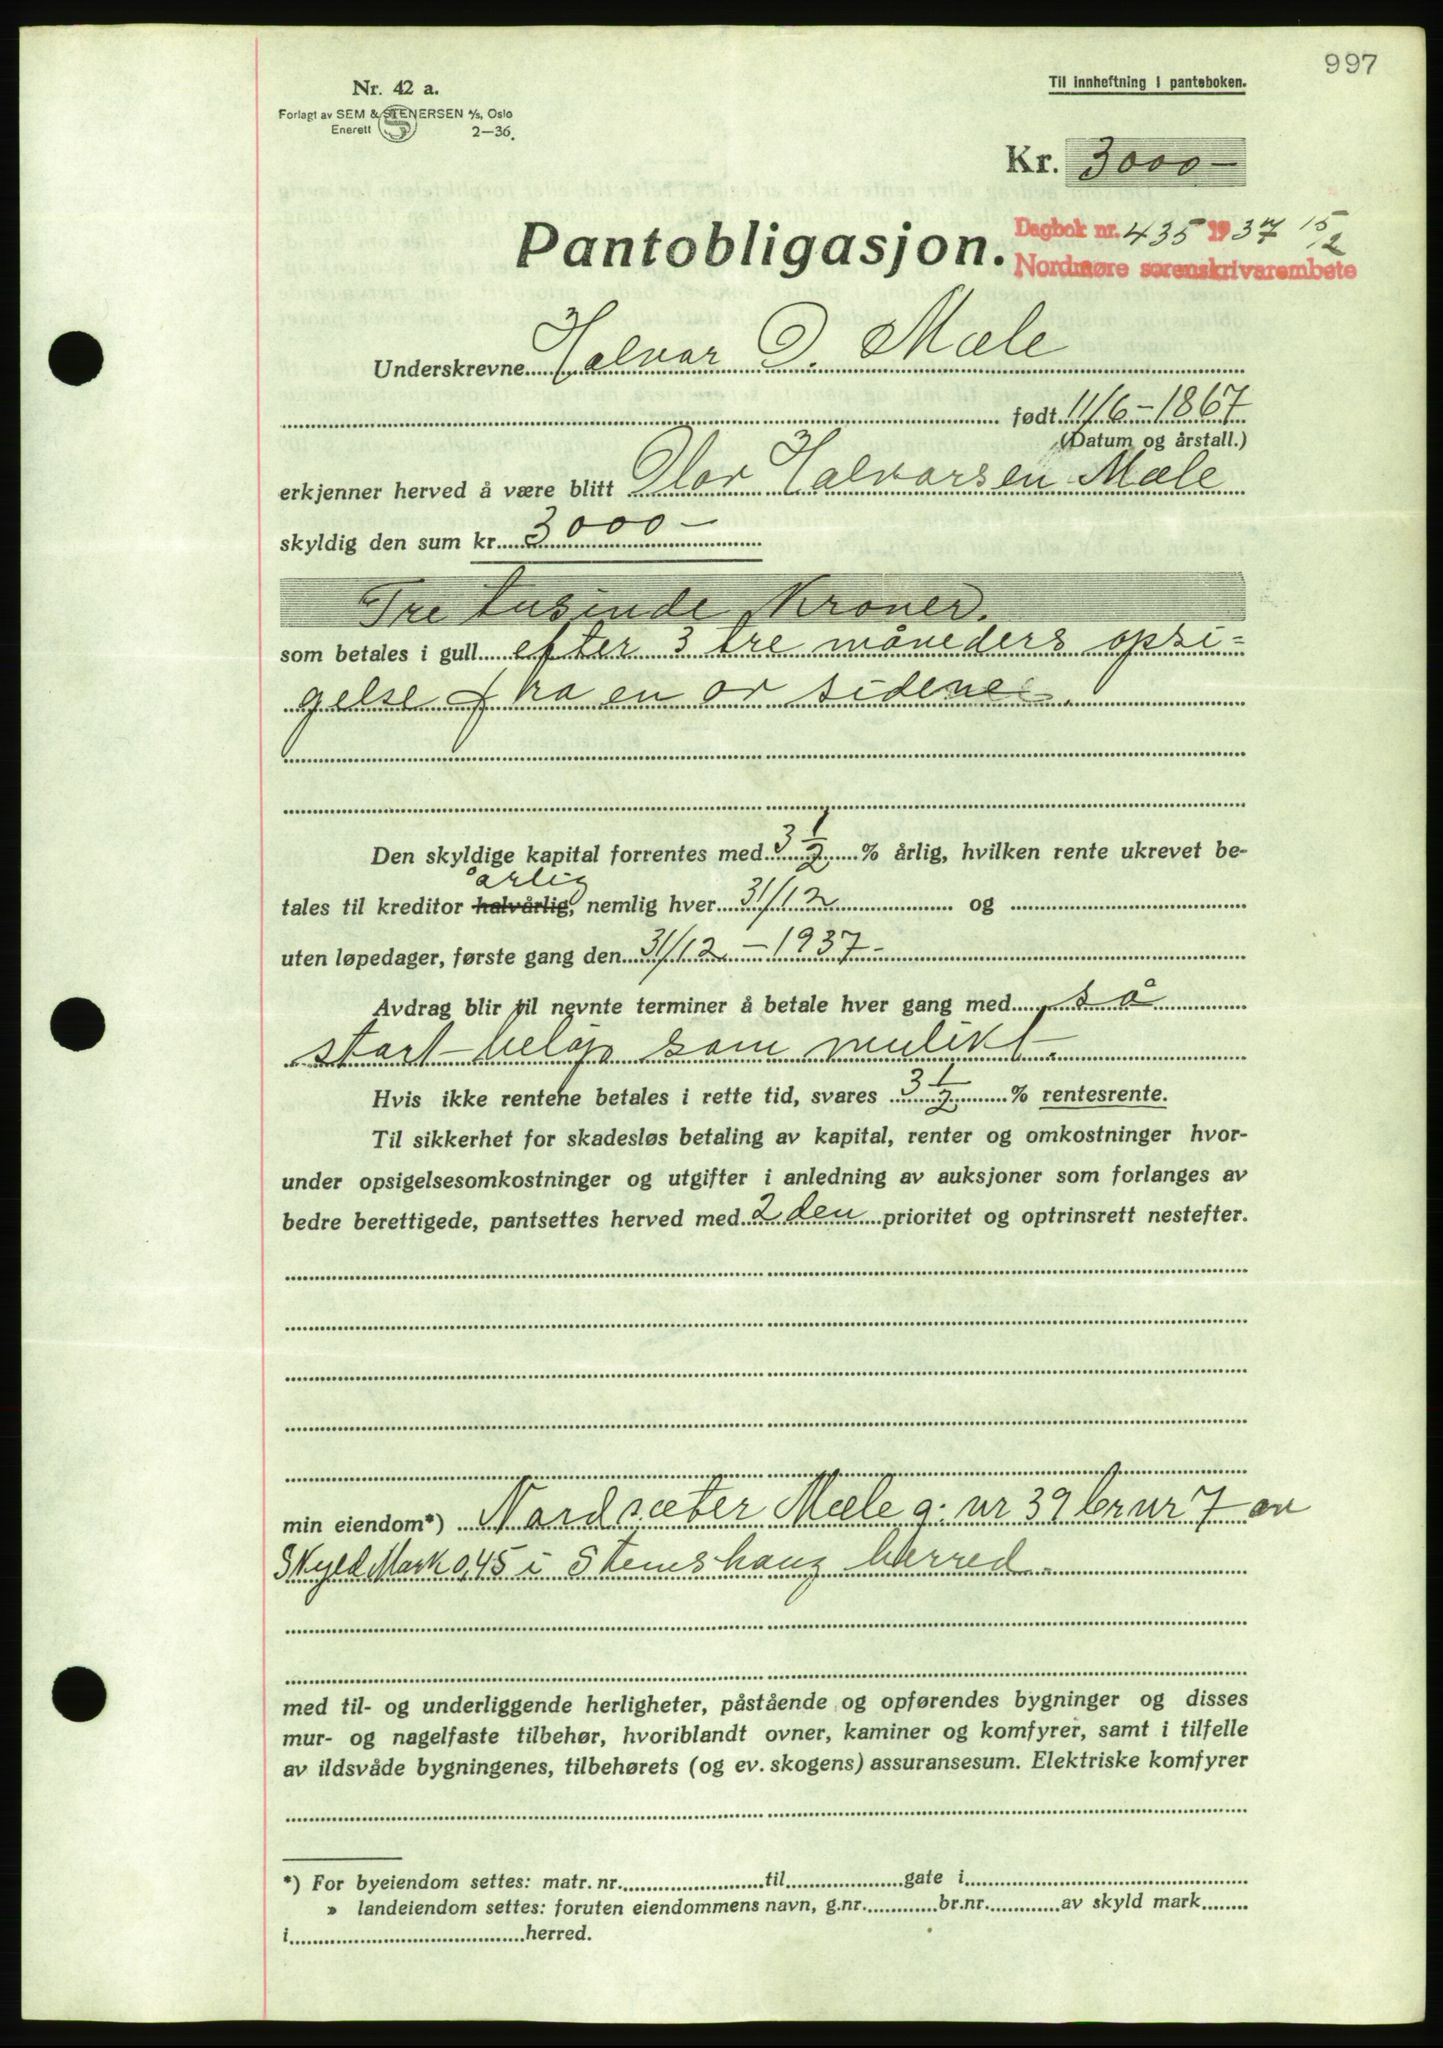 997
Nr. 42 a.
Til innheftning i panteboken.
Forlagt av SEM & STENERSEN A/S, Oslo
Enerett 2—36.
Kr. 3000 —
Dagbok nr. 435 1937 15/2
Pantobligasjon.
Nordmøre sorenskrivarembete
Underskrevne Halvar O. Mæle
født 11/6 – 1867
(Datum og årstall.)
erkjenner herved å være blitt Olav Halvorsen Mæle
skyldig den sum kr. 3000 –
Tre tusinde Kroner.
som betales i gull efter 3 tre måneders opsi-
gelse fra en av sidene
Den skyldige kapital forrentes med 3 1/2 % årlig, hvilken rente ukrevet be-
årlig
tales til kreditor halvårlig, nemlig hver 31/12 og
uten løpedager, første gang den 31/12 – 1937 –
Avdrag blir til nevnte terminer å betale hver gang med så
stort beløp som mulikt –
Hvis ikke rentene betales i rette tid, svares 3 1/2 % rentesrente.
Til sikkerhet for skadesløs betaling av kapital, renter og omkostninger hvor-
under opsigelsesomkostninger og utgifter i anledning av auksjoner som forlanges av
bedre berettigede, pantsettes herved med 2den prioritet og optrinsrett nestefter.
min eiendom*) Nordsæter Mæle g. nr 39 br nr 7 av
Skyld Mark 0,45 i Stemshaug herred.
med til- og underliggende herligheter, påstående og opførendes bygninger og disses
mur- og nagelfaste tilbehør, hvoriblandt ovner, kaminer og komfyrer, samt i tilfelle
av ildsvåde bygningenes, tilbehørets (og ev. skogens) assuransesum. Elektriske komfyrer
*) For byeiendom settes: matr. nr. til gate i
» landeiendom settes: foruten eiendommens navn, g.nr. br.nr. av skyld mark
i herred.